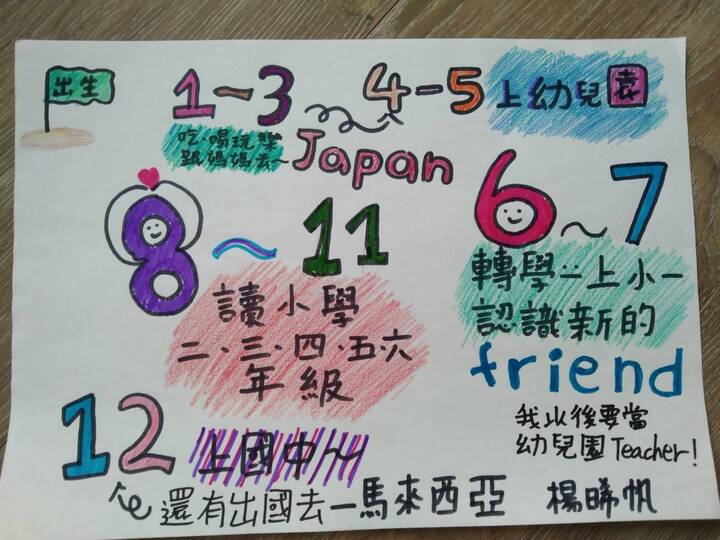 出生
1~3
4-5
上幼兒園
吃、喝玩樂
跟媽媽去~
Japan
6~7
轉學…上小一
認識新的
friend
8~11
讀小學
二、三、四、五、六
年級
12
上國中~
還有出國去—馬來西亞
我以後要當
幼兒園Teacher!
楊晞帆